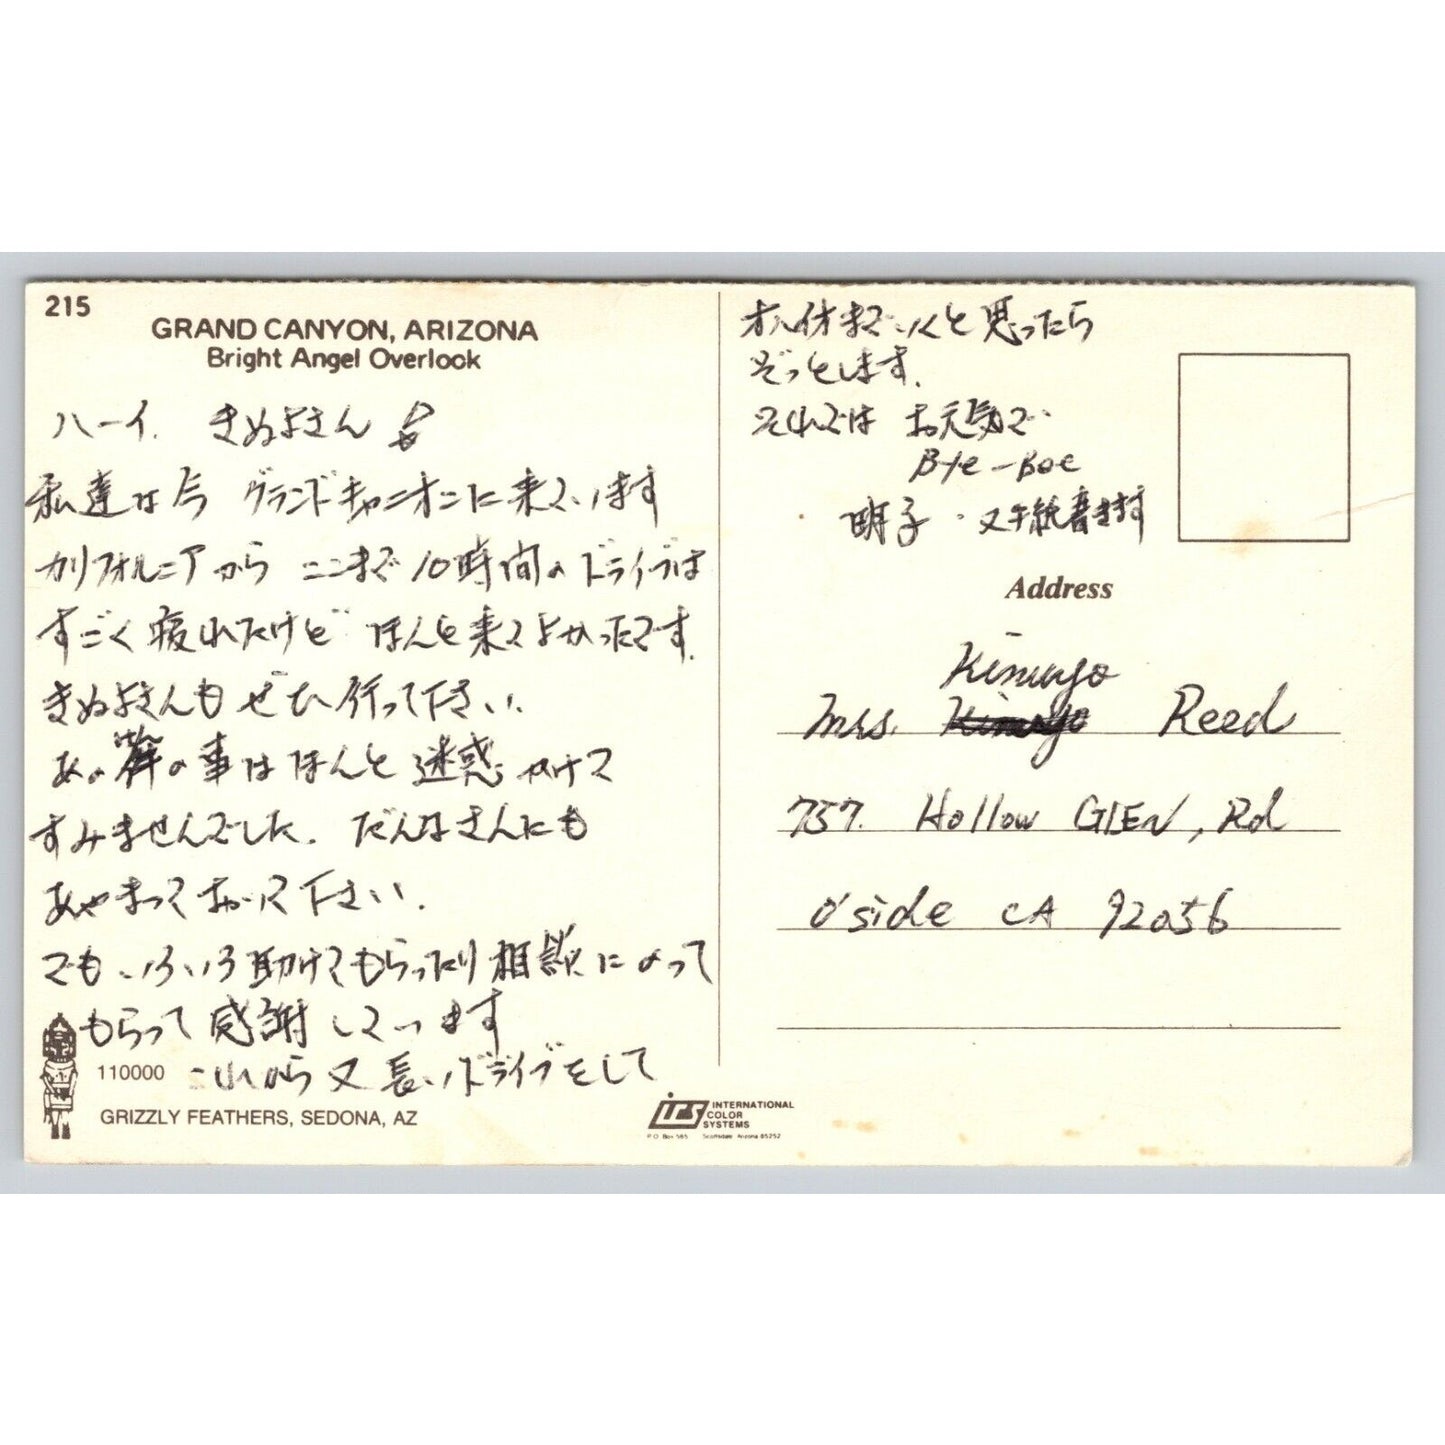 215
GRAND CANYON, ARIZONA
Bright Angel Overlook
ハーイ. きぬよさん
私達は今 グランドキャニオンに来ています
カリフォルニアから ここまで 10時間のドライブは
すごく疲れたけど ほんと来てよかったです.
きぬよさんも ぜひ行って下さい.
あの 件の事はほんと迷惑かけて
すみませんでした. だんなさんにも
あやまっておいて下さい.
でも、いろいろ助けてもらったり相談によって
もらって感謝しています
これから又長いドライブをして
110000
GRIZZLY FEATHERS, SEDONA, AZ
irs INTERNATIONAL
COLOR
SYSTEMS
P.O. Box 585 Scottsdale Arizona 85252
まで いくと思ったら
ぞっとします.
それでは お元気で
Bye-Bye
明子 . 又手紙書きます
Address
Kinuyo
Mrs. Reed
757. Hollow GLEN, Rd
O'side CA 92056